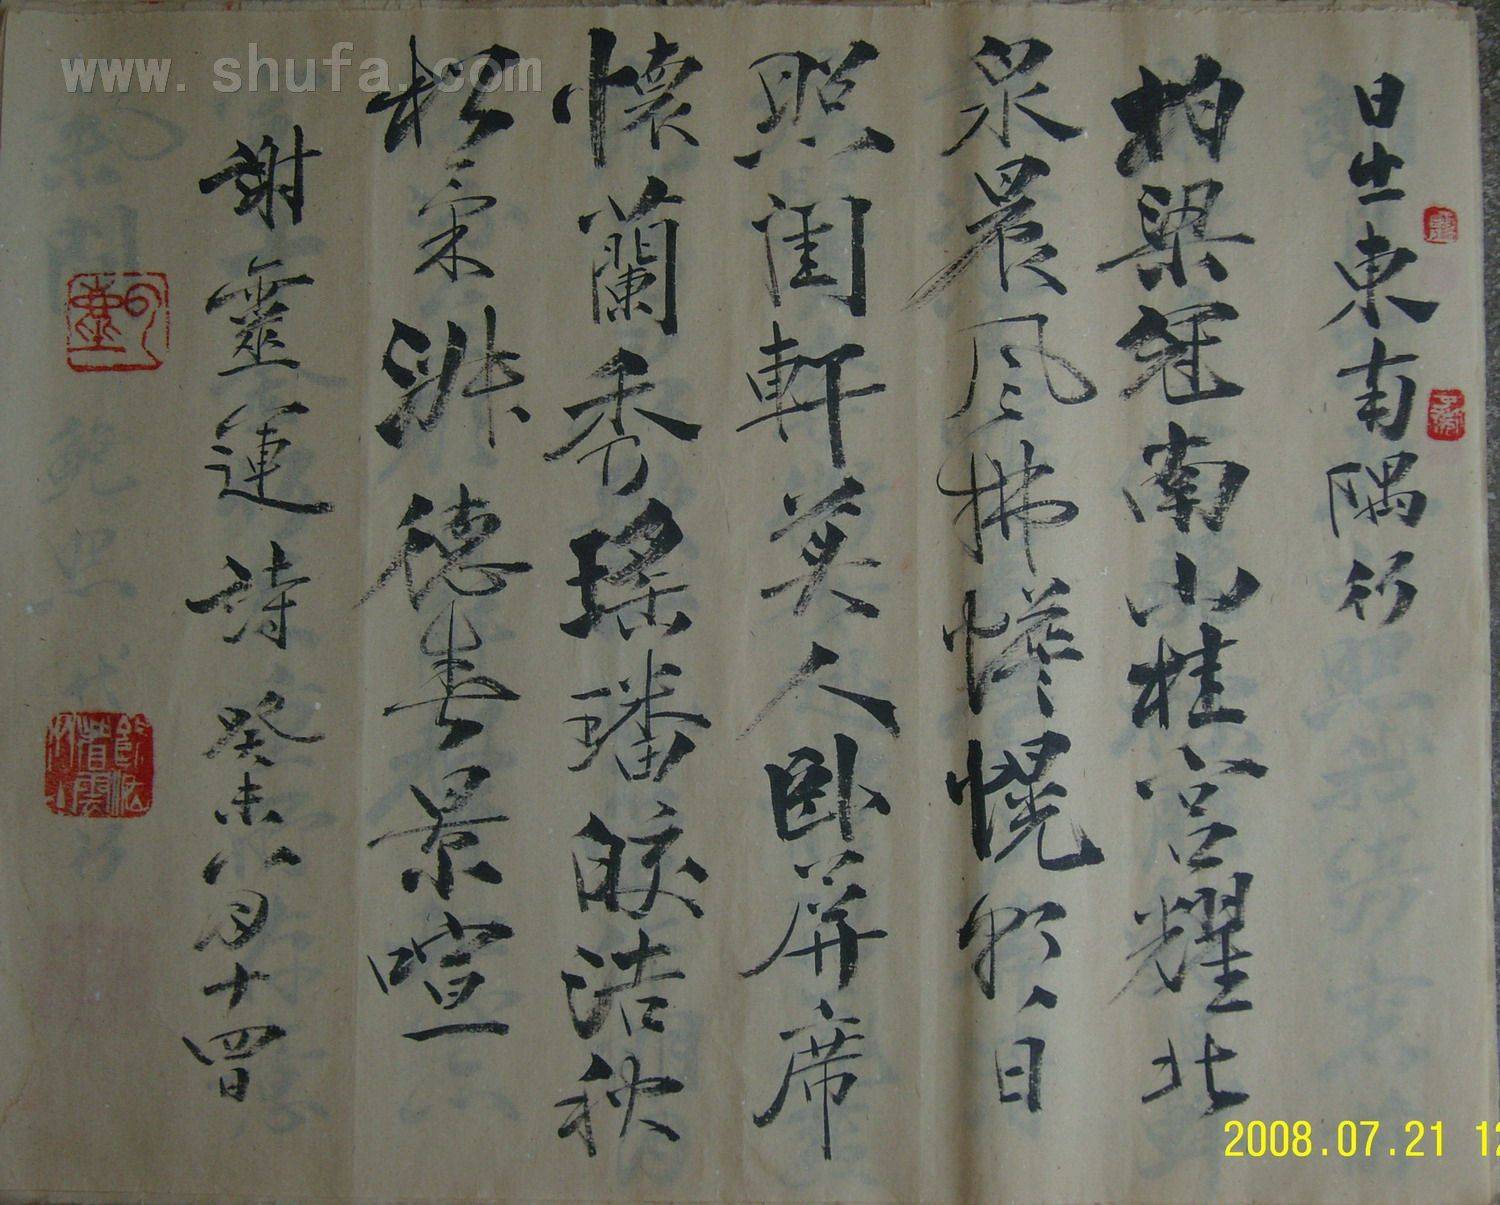 日出東南隅行
柏梁冠南山桂宮耀北
泉晨風拂幨幌朝日
照閨軒美人卧屏席
懷蘭秀瑤璠皎洁秋
松氣淑德春景喧
謝靈運詩 癸未八月十四日
www.shufa.com
2008.07.21 12